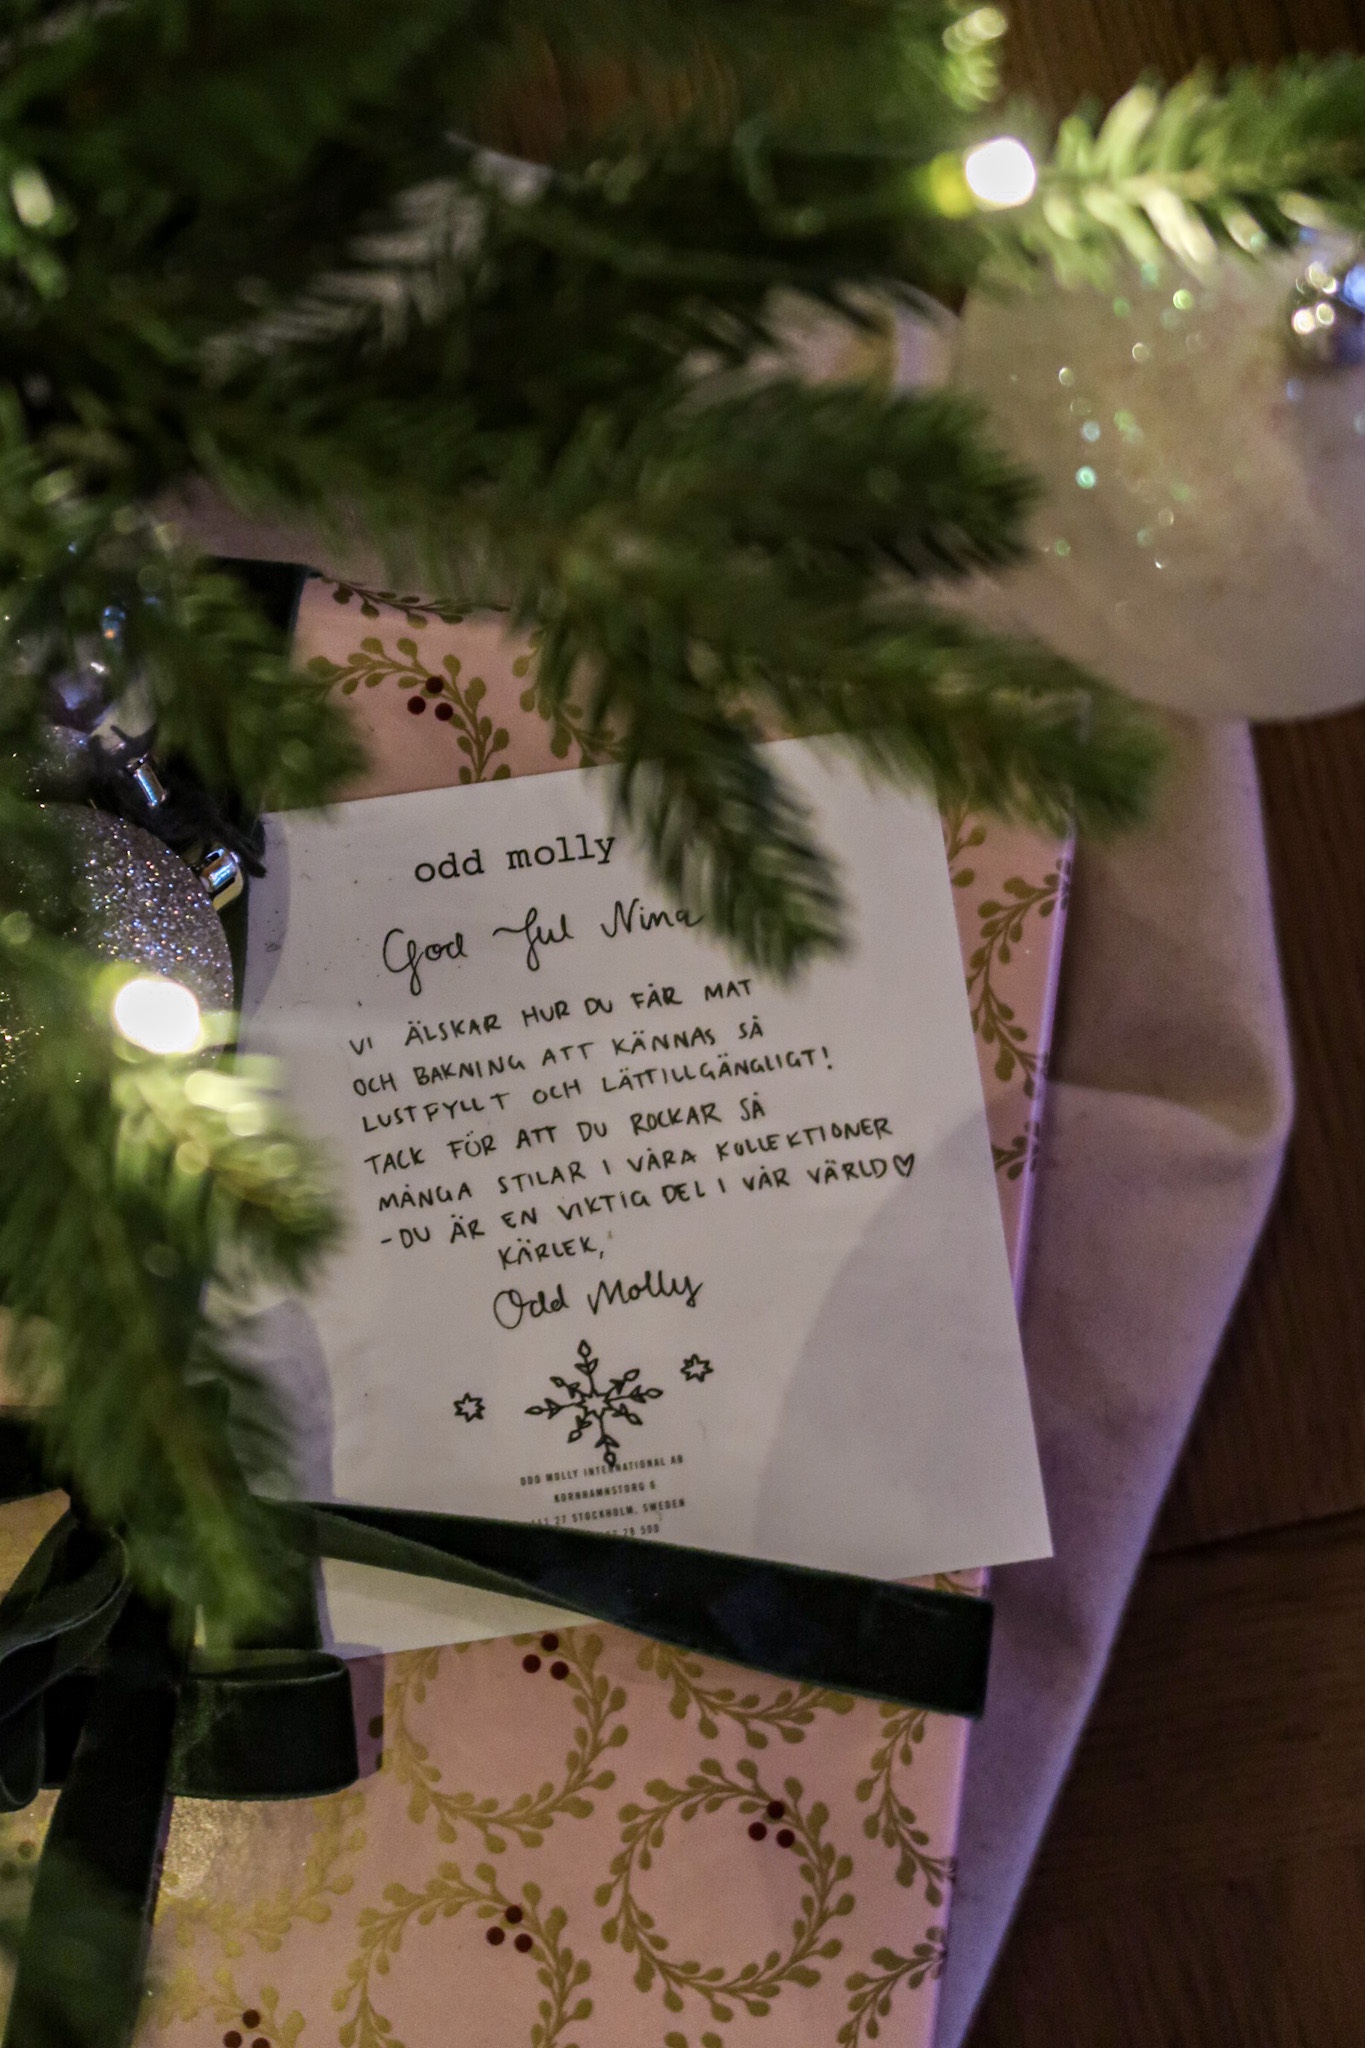 odd molly
God Jul Nina
VI ÄLSKAR HUR DU FÅR MAT
OCH BAKNING ATT KÄNNAS SÅ
LUSTFYLLT OCH LÄTTILLGÄNGLIGT!
TACK FÖR ATT DU ROCKAR SÅ
MÅNGA STILAR I VÅRA KOLLEKTIONER
-DU ÄR EN VIKTIG DEL I VÅR VÄRLD♡
KÄRLEK,
Odd Molly
ODD MOLLY INTERNATIONAL AB
KORNHAMNSTORG 6
27 STOCKHOLM, SWEDEN
28 500